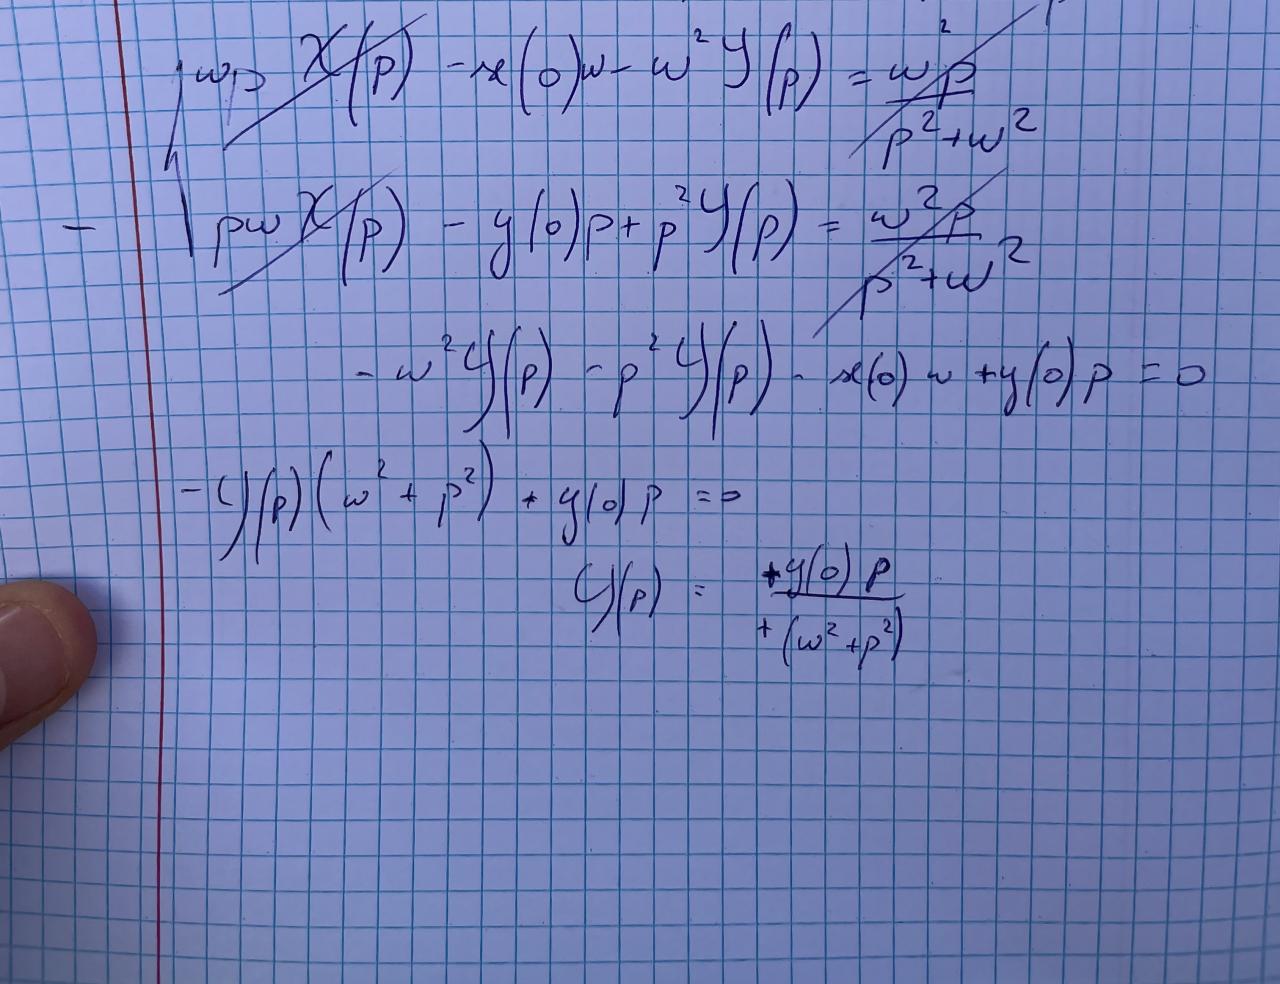 wp X(p) - x(0)w - w² Y(p) = w²p / p²+w²
- pw X(p) - y(0)p + p² Y(p) = w²p / p²+w²
- w² Y(p) - p² Y(p) - x(0) w + y(0) p = 0
- Y(p) (w² + p²) + y(0) p = 0
Y(p) = +y(0) p / +(w²+p²)